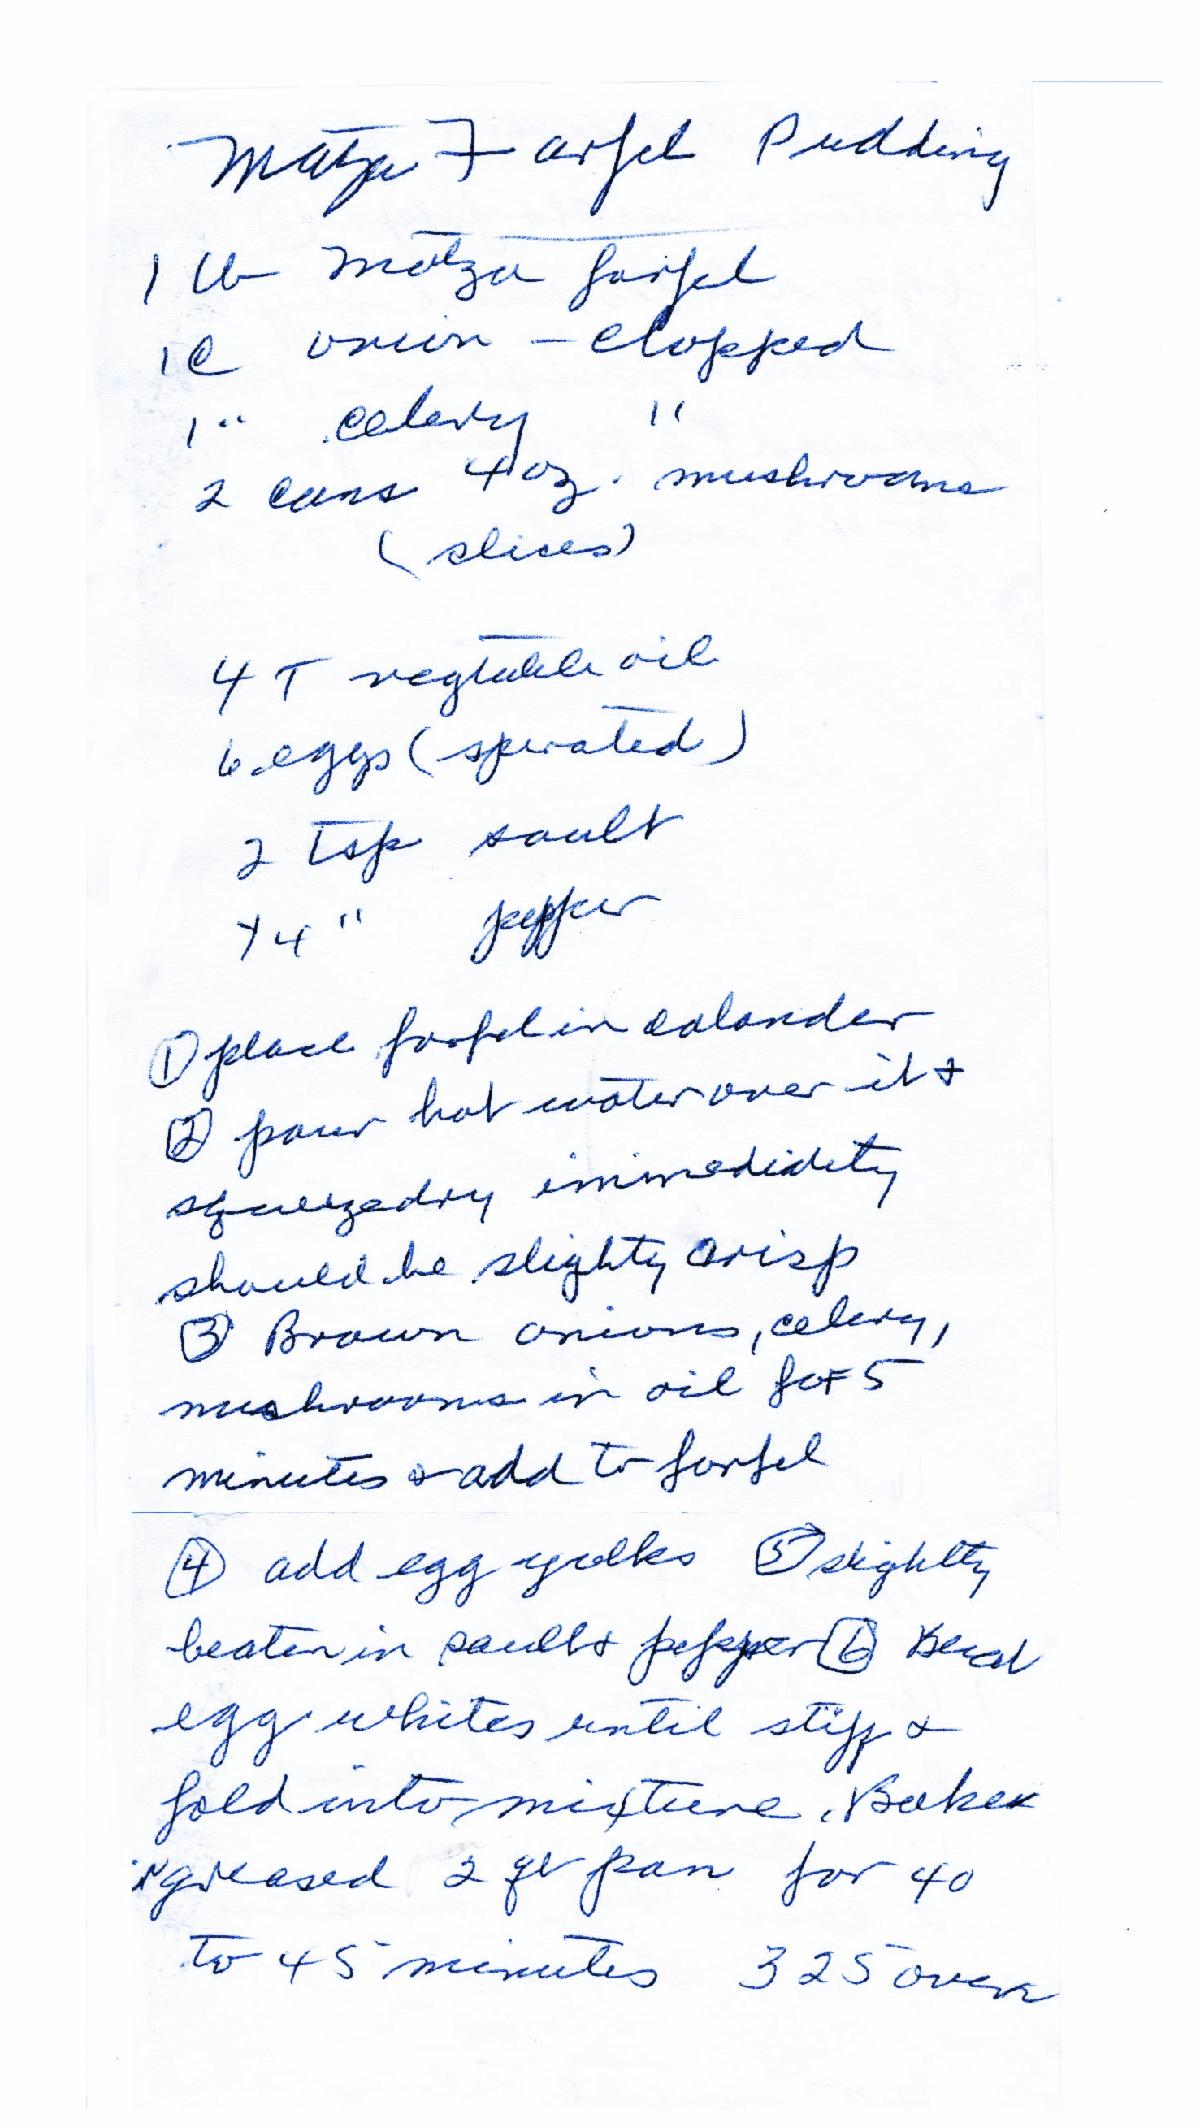 Matza Farfel Pudding
1 lb Matza farfel
1 C onion - chopped
1 " celery "
2 cans 4 oz. mushrooms
(slices)
4 T vegtable oil
6 eggs (sperated)
2 Tsp sault
1/4 " pepper
① place farfel in colander
② pour hot water over it &
squeeze dry immedidety
should be slighty crisp
③ Brown onions, celery,
mushrooms in oil for 5
minutes & add to farfel
④ add egg yolks ⑤ slightty
beaten in sault & pepper ⑥ Beat
egg whites until stiff &
fold into mixture. Bake
in greased 2 qt pan for 40
to 45 minutes 325 oven